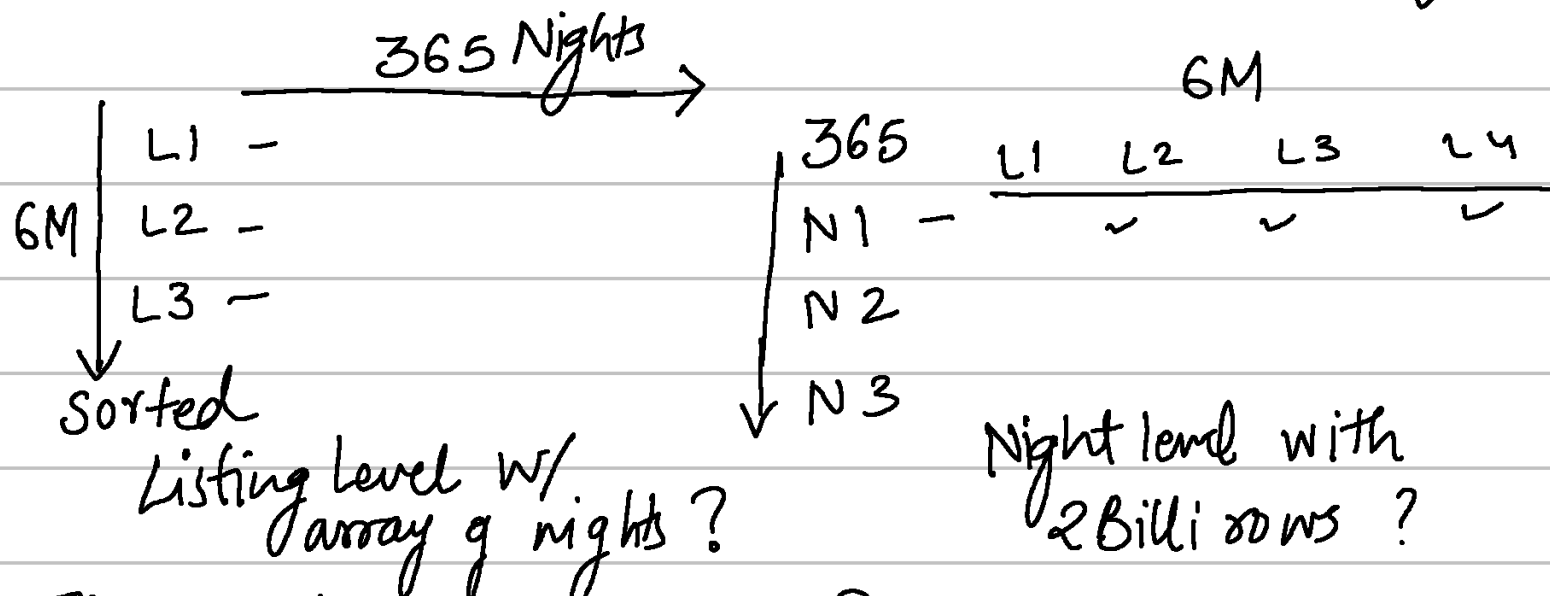 365 Nights
L1 -
6M L2 -
L3 -
Sorted
Listing Level w/
array of nights ?
6M
365 L1 L2 L3 L4
N1 - ✓ ✓ ✓
N2
N3
Night level with
2 Billi rows ?